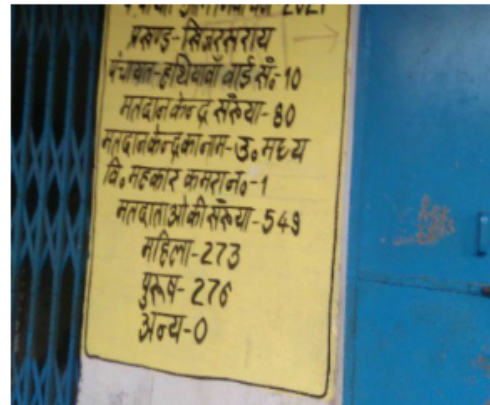 पंचायत आम निर्वाचन 2021
प्रखण्ड-खिजरसराय
पंचायत-हथियावाँ वार्ड सं०-10
मतदान केन्द्र संख्या-80
मतदान केन्द्र का नाम-उ० मध्य
वि० महकार कमरा न०-1
मतदाताओ की संख्या-549
महिला-273
पुरूष-276
अन्य-0